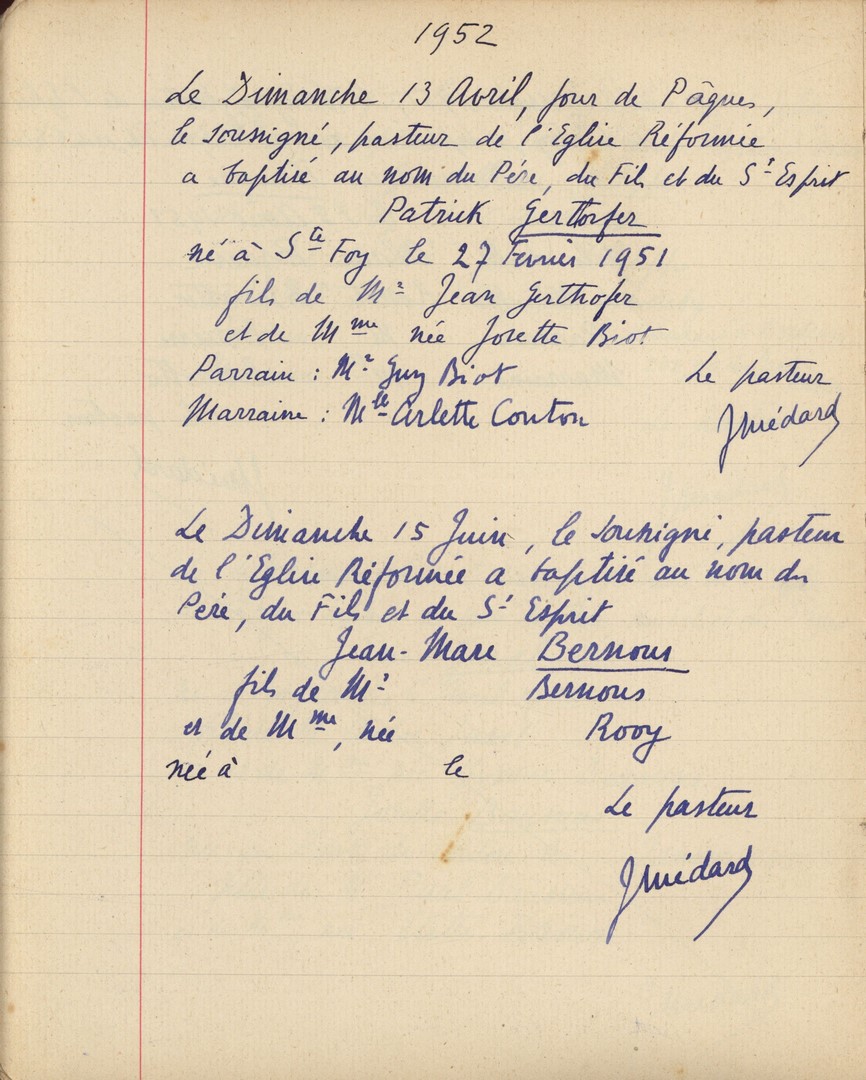 1952
Le Dimanche 13 Avril, jour de Pâques,
le soussigné, pasteur de l'Eglise Réformée
a baptisé au nom du Père, du Fils et du St Esprit
Patrick Gerthofer
né à Ste Foy le 27 Fevrier 1951
fils de Mr Jean Gerthofer
et de Mme née Josette Biot
Parrain : Mr Guy Biot Le pasteur
Marraine : Mlle Arlette Conton JMédard
Le Dimanche 15 Juin, le soussigné, pasteur
de l'Eglise Réformée a baptisé au nom du
Père, du Fils et du St Esprit
Jean-Marc Bernous
fils de Mr Bernous
et de Mme, née Rooy
né à le
Le pasteur
JMédard